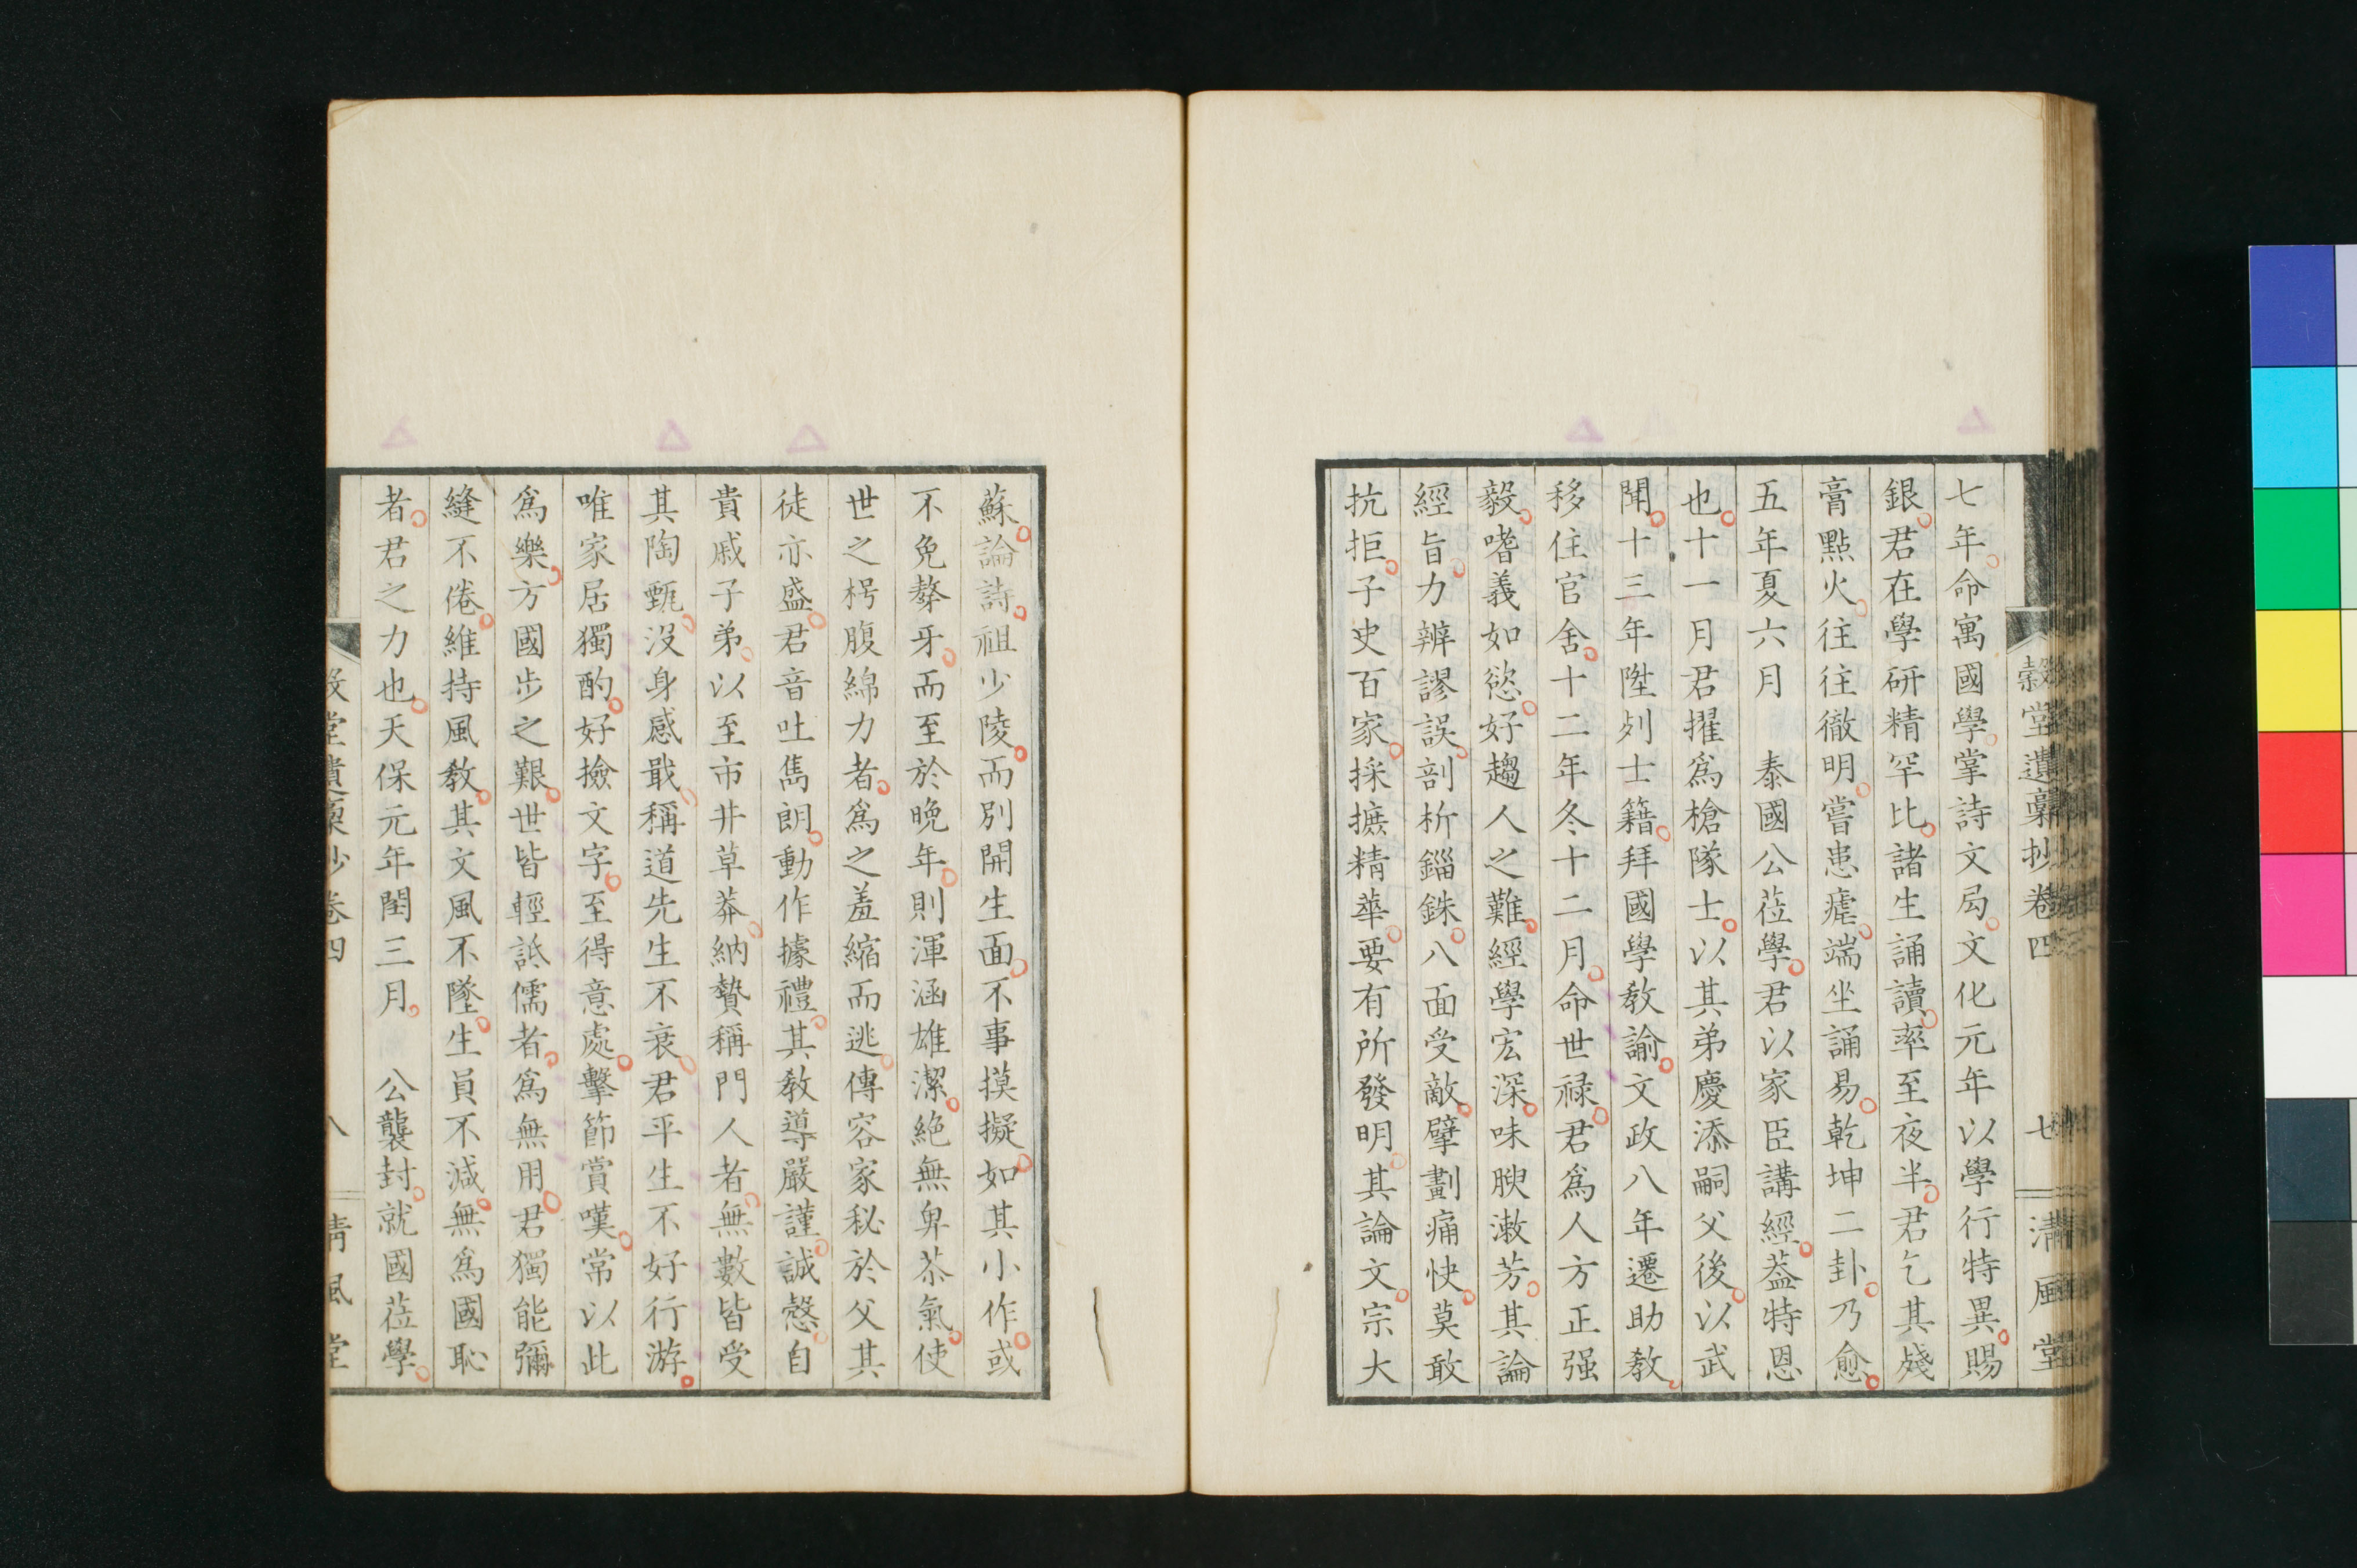 穀堂遺稾抄卷四　七　清風堂
七年命寓國學掌詩文局文化元年以學行特異賜
銀君在學硏精罕比諸生誦讀率至夜半君乞其殘
膏點火往往徹明嘗患瘧端坐誦易乾坤二卦乃愈
五年夏六月　泰國公莅學君以家臣講經葢特恩
也十一月君擢爲槍隊士以其弟慶添嗣父後以武
聞十三年陞列士籍拜國學敎諭文政八年遷助敎
移住官舍十二年冬十二月命世祿君爲人方正强
毅嗜義如慾好趨人之難經學宏深味腴潄芳其論
經旨力辨謬誤剖析錙銖八面受敵擘劃痛快莫敢
抗拒子史百家採摭精華要有所發明其論文宗大
蘇論詩祖少陵而別開生面不事摸擬如其小作或
不免聱牙而至於晩年則渾涵雄潔絶無卑苶氣使
世之枵腹綿力者爲之羞縮而逃傳容家秘於父其
徒亦盛君音吐雋朗動作據禮其敎導嚴謹誠慤自
貴戚子弟以至市井草莽納贄稱門人者無數皆受
其陶甄沒身感戢稱道先生不衰君平生不好行游
唯家居獨酌好撿文字至得意處擊節賞嘆常以此
爲樂方國步之艱世皆輕詆儒者爲無用君獨能彌
縫不倦維持風敎其文風不墜生員不減無爲國恥
者君之力也天保元年閏三月　公襲封就國莅學
穀堂遺稾抄卷四　八　清風堂